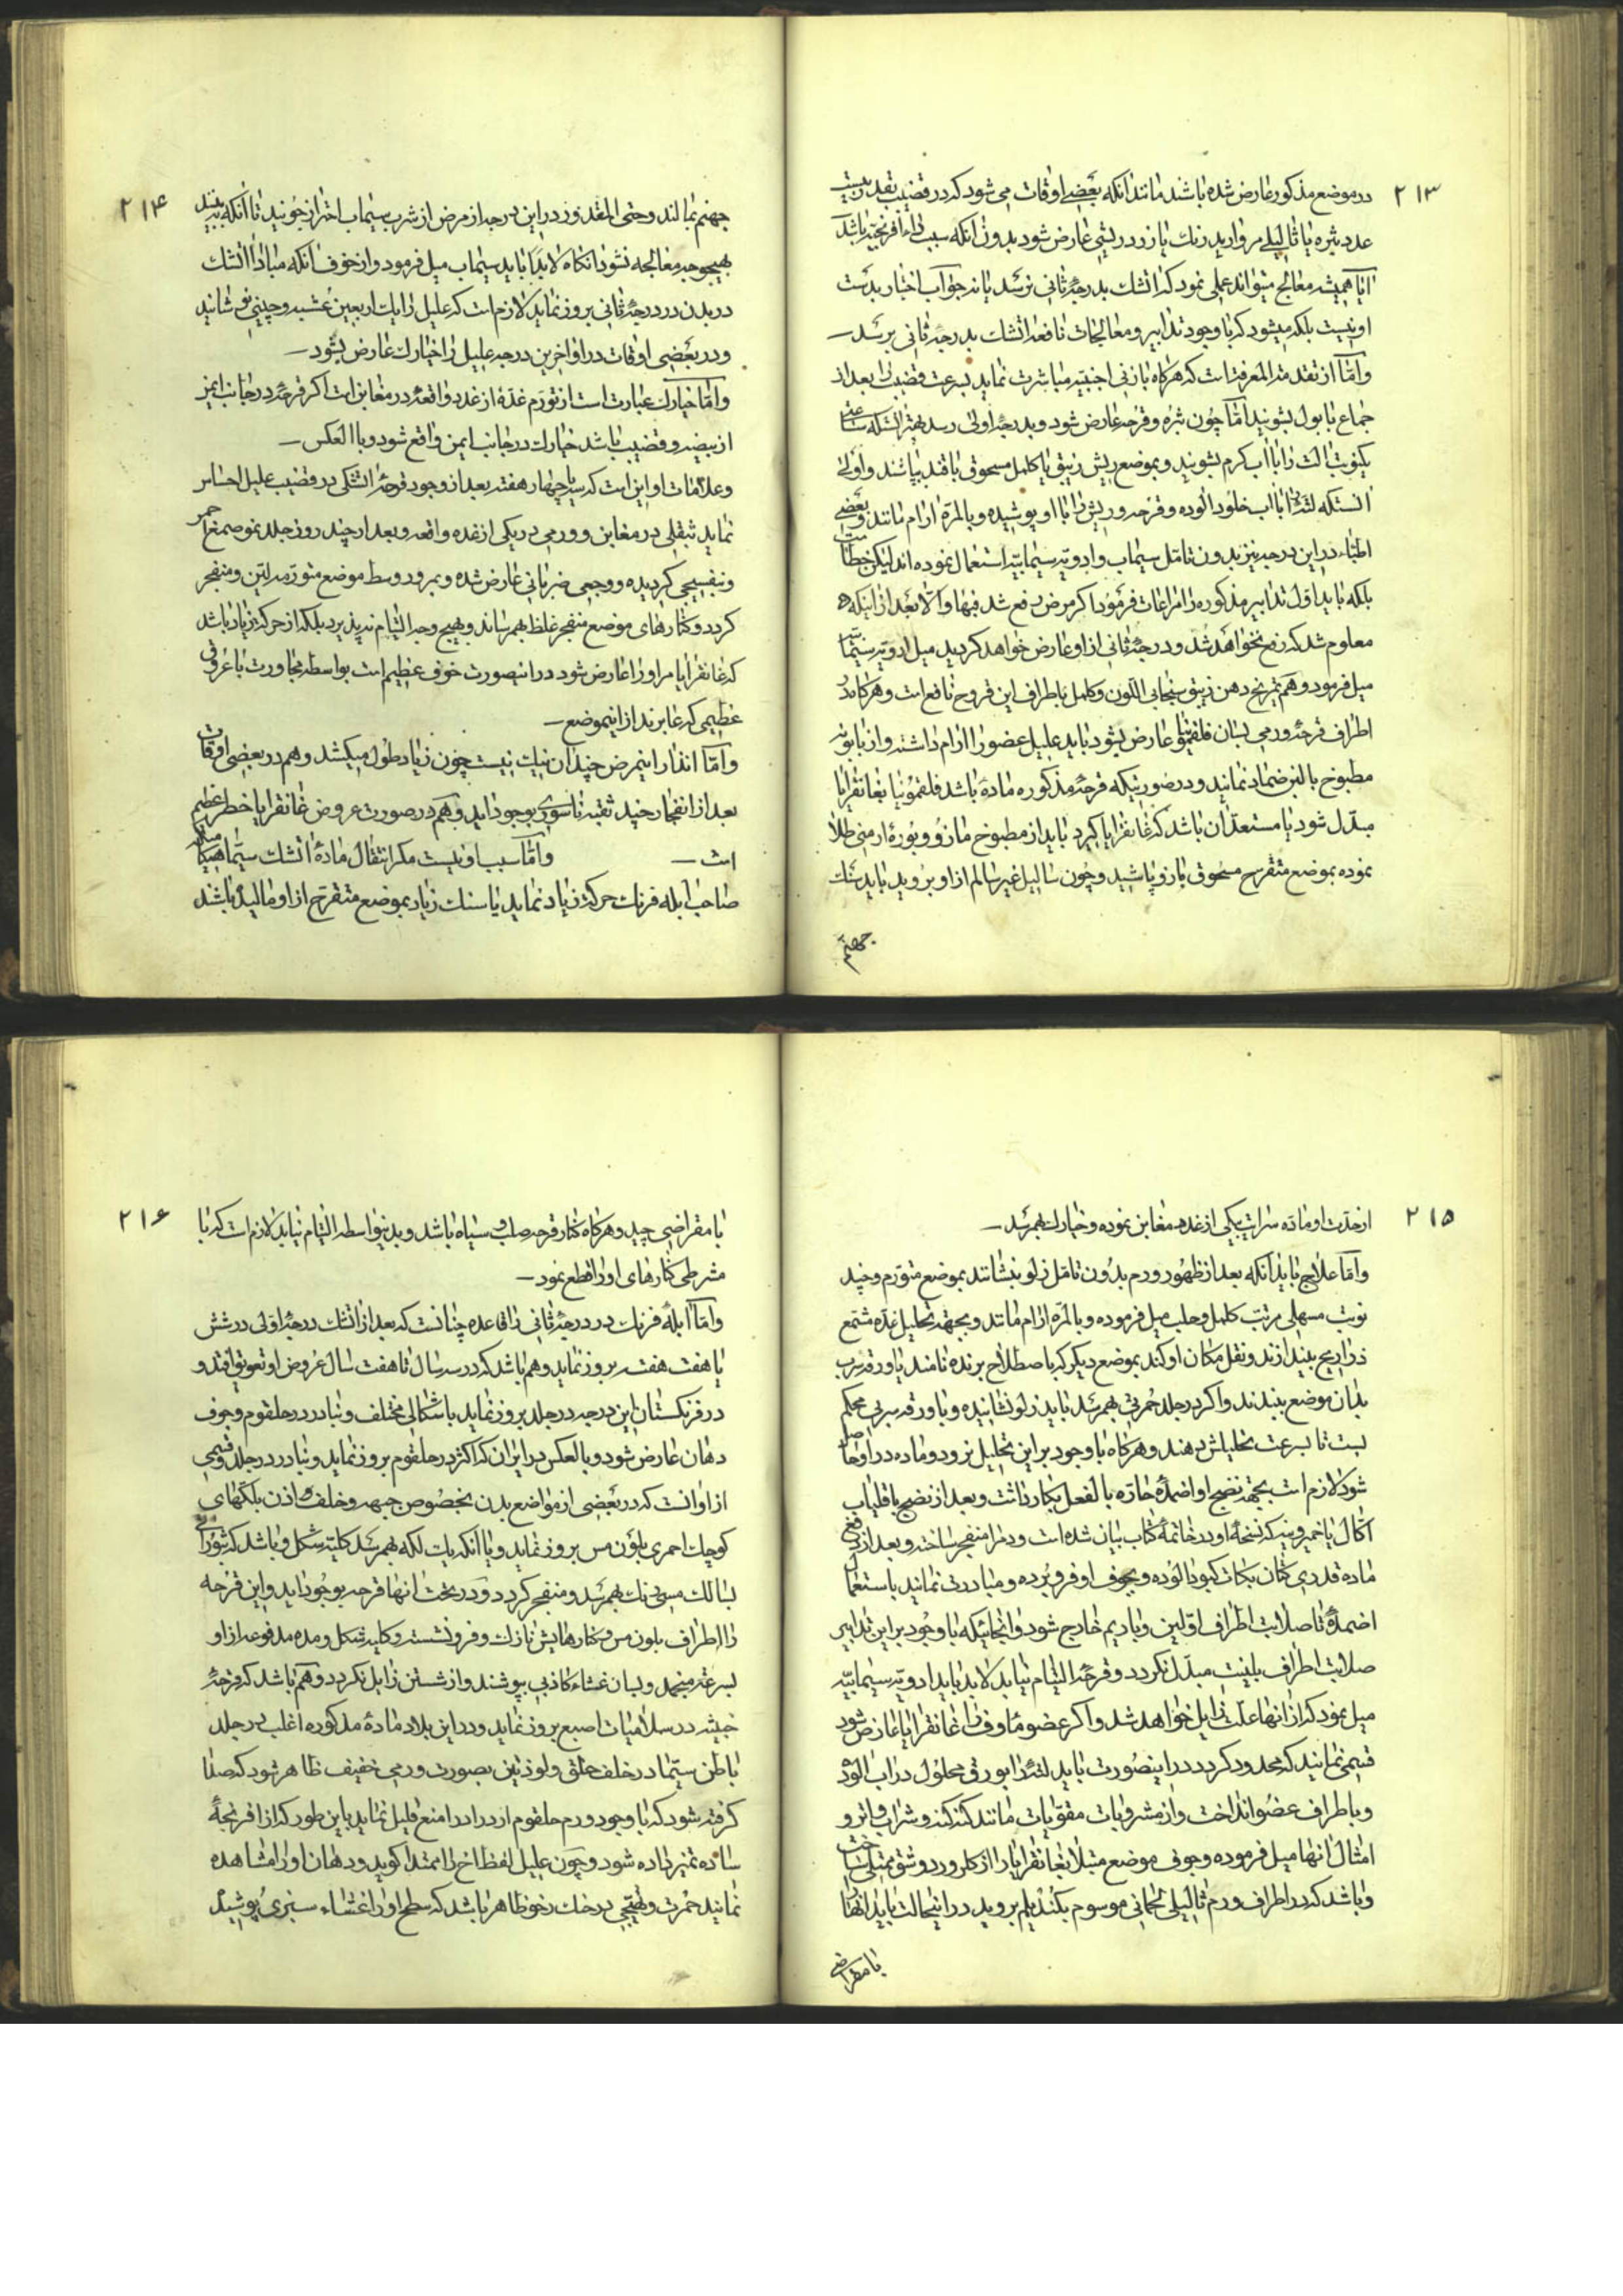 ۲۱۳
در موضع مذکور عارض شده باشند مانند آنکه بعضی اوقات می شود که در قضیب بقدر بیست
عدد بثره یا ثالیلی مروارید رنک یا زرد ریشی عارض شود بدون آنکه سبب افرنجیه باشد
آیا همیشه معالج میتواند عملی نمود که اتشک بدرجهٔ ثانی نرسد یا نه جواب اختیار بدست
او نیست بلکه میشود که با وجود تدابیر و معالجات نافعه اتشک بدرجهٔ ثانی برسد
و امّا از تقدمة المعرفة است که هرکاه با زنی اجنبیه مباشرت نماید بسرعت قضیب را بعد از
جماع با بول بشویند امّا چون بثره و قرحه عارض شود و بدرجهٔ اولی رسد بهتر آنستکه ساعتی
یکنوبت آلت را با آب کرم بشویند و بموضع ریش زیبق یا کلمل مسحوق با قند بپاشند و اولی
آنستکه لته را با آب خلود آلوده و قرحه و ریش را با او پوشیده و بالمرّه آرام مانند و بعضی
اطبّاء در این درجه نیز بدون تامّل سیماب و ادویه سیمابیّه استعمال نموده اند لیکن خطاست
بلکه باید اوّل تدابیر مذکوره را مراعات فرمود اکر مرض رفع شد فبها و الّا بعد از اینکه
معلوم شد که رفع نخواهد شد و درجهٔ ثانی از او عارض خواهد کردید میل ادویه سیمابیّه
میل فرمود و هم تمریخ دهن زیبق سنجابی اللّون و کلمل باطراف این قروح نافع است و هرکاه در
اطراف قرحه ورمی بسان فلقمونیا عارض بشود باید علیل عضو را آرام داشته و از بابونه
مطبوخ بالبن ضماد نمایند و در صورتیکه قرحهٔ مذکوره ماده باشد فلقمونیا بغانقرایا
مبدّل شود یا مستعدّ آن باشد که غانقرایا کیرد باید از مطبوخ مازو و بورهٔ ارمنی طلا
نموده بموضع متقرح مسحوق بازو پاشید و چون ثالیل غیر سالم از او بروید باید سنک
جهنم
۲۱۴
جهنم بمالند و حتی المقدور در این درجه از مرض از شرب سیماب احتراز جویند تا آنکه ببینند
بهیچوجه معالجه نشود آنکاه لابدا باید سیماب میل فرمود و از خوف آنکه مبادا اتشک
در بدن در درجهٔ ثانی بروز نماید لازم است که علیل را یک اربعین عشبه و چینی نوشانید
و در بعضی اوقات در اواخر این درجه علیل را خیارک عارض بشود
و امّا خیارک عبارت است از تورّم غدّهٔ از غدد واقعهٔ در مغابن است اکر قرحه در جانب ایمن
از بیضه و قضیب باشد خیارک در جانب ایمن واقع شود و بالعکس
و علامات او این است که سه یا چهار هفته بعد از وجود قرحهٔ اتشکی در قضیب علیل احساس
نماید بثقلی در مغابن و ورمی در یکی از غدهٔ واقعه و بعد از چند روز جلد موضع احمر
و بنفسجی کردیده و وجعی ضربانی عارض شده و بمرور وسط موضع متورّمه لیّن و منفجر
کردد و کنارهای موضع منفجر غلظ بهمرساند و بهیچ وجه التیام نپذیرد بلکه از حرکة زیاد باشد
که غانقرایا مر او را عارض شود در اینصورت خوف عظیم است بواسطه مجاورت با عروق
عظیمی که عابرند از اینموضع
و امّا انذار اینمرض چندان نیک نیست چون زیاد طول میکشد و هم در بعضی اوقات
بعد از انفجار چند ثقبه ناسوری بوجود آید و هم در صورت عروض غانقرایا خطر عظیم
است و امّا سبب او نیست مکر انتقال مادهٔ اتشک سیّما هنکامیکه
صاحب آبله فرنک حرکة زیاد نماید یا سنک زیاد بموضع متقرح از او مالیده باشد
۲۱۵
از حدّت او ماده سرایت بیکی از غدهٔ مغابن نموده و خیارک بهمرسد
و امّا علاج باید آنکه بعد از ظهور ورم بدون تامّل زلو بنشانند بموضع متورّم و چند
نوبت مسهلی مرتب کلمل و جلب میل فرموده و بالمرّه آرام مانند و بجهة تحلیل غدّه مشمّع
ذراریح بیندازند و نقل مکان او کند بموضع دیکر که باصطلاح برنده نامند یا ورقه سرب
بدان موضع ببندند و اکر در جلد حمرتی بهمرسد باید زلو نشانیده و با ورقه سربی محکم
بست تا بسرعت تحلیلش دهند و هرکاه با وجود بر این تحلیل نرود و ماده در او حاصل
شود لازم است بجهة نضج او اضمدهٔ حارّه بالفعل بکار داشت و بعد از نضج با قلیاب
اکّال یا خمیر وینه که نسخهٔ او در خاتمهٔ کتاب بیان شده است ورم را منفجر ساخته و بعد از رفع
ماده قدری کتان بکات کبود آلوده و بجوف او فرو برده و مبادرت نمایند باستعمال
اضمدهٔ تا صلابت اطراف او لین و یا ریم خارج شود و آنجائیکه با وجود بر این تدابیر
صلابت اطراف بلینت مبدّل نکردد و قرحهٔ التیام نیابد لابد باید ادویه سیمابیّه
میل نمود که از آنها علت زایل خواهد شد و اکر عضو ماوف را غانقرایا عارض شود
قسمی نمایند که محدود کردد در اینصورت باید لتهٔ را بورق محلول در آب آلوده
و باطراف عضو انداخت و از مشروبات مقوّیات مانند کنه کنه و شراب و اتر و
امثال آنها میل فرموده و جوف موضع مبتلا بغانقرایا را از کلرور دو شو ممتلی ساخت
و باشد که در اطراف ورم ثالیلی لحمانی موسوم بکندیلم بروید در اینحالت باید آنها را
با مقراضی
۲۱۶
با مقراضی چید و هرکاه کنار قرحه صلب و سیاه باشد و بدینواسطه التیام نیابد لازم است که با
مشرطی کنارهای او را قطع نمود
و امّا آبلهٔ فرنک در درجهٔ ثانی را قاعده چنانست که بعد از اتشک درجهٔ اولی در شش
یا هفت هفته بروز نماید و هم باشد که در سه سال تا هفت سال عروض او تعویق افتد و
در فرنکستان این درجه در جلد بروز نماید باشکالی مختلف و نبادر در حلقوم و جوف
دهان عارض شود و بالعکس در ایران که اکثر در حلقوم بروز نماید و نبادر در جلد و قسمی
از او آنست که در بعضی از مواضع بدن بخصوص جبهه و خلف اذن بلکهای
کوچک احمری بلون مس بروز نماید و یا آنکه یک لکه بهمرسد کلیة شکل و باشد که بثورات
بسا لک مسی رنک بهمرسد و منفجر کردد و در تحت آنها قرحه بوجود آید و این قرحه
را اطراف بلون مس و کنارهایش نازک و فرو نشسته و کلیه شکل و مده مدفوعه از او
بسرعة منجمد و بسان غشاء کاذبی بپوشند و از شستن زایل نکردد و هم باشد که قرحهٔ
خبیثه در سلامیات اصبع بروز نماید و در این بلاد مادهٔ مذکوره اغلب در جلد
باطن سیّما در خلف حلق و لوزتین بصورت ورمی خفیف ظاهر شود که صدا
کرفته شود که با وجود ورم حلقوم ازدراد را منع قلیل نماید باین طور که از افرنجهٔ
ساده تمیز داده شود و چون علیل لفظ آخ را ممتدا کوید و دهان او را مشاهده
نمایند حمرت و تهیّجی در حنک رخو ظاهر باشد که سطح او را غشاء سبزی پوشیده